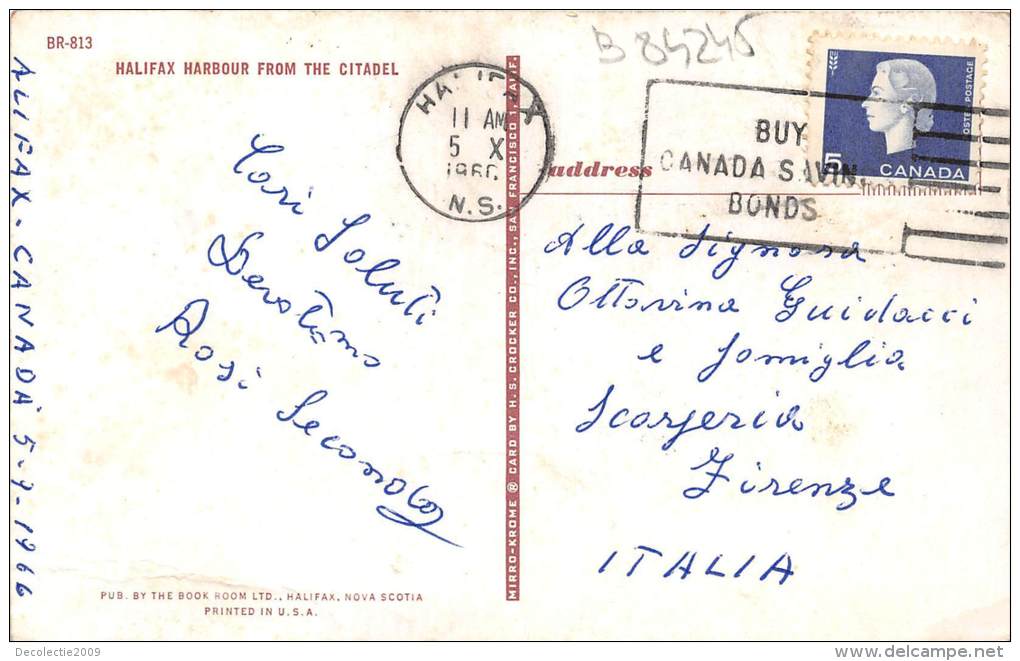 BR-813
HALIFAX HARBOUR FROM THE CITADEL
ALIFAX - CANADA' 5-9-1966
Cari Saluti
Rosi
PUB. BY THE BOOK ROOM LTD., HALIFAX, NOVA SCOTIA
PRINTED IN U.S.A.
MIRRO-KROME ® CARD BY H. S. CROCKER CO., INC., SAN FRANCISCO 1, CALIF.
B 84245
11 AM
5 X
N.S.
BUY
CANADA SAVIN
BONDS
5
POSTES POSTAGE
CANADA
address
Alla Signora
Ottavina Guidacci
e famiglia
Scarperia
Firenze
ITALIA
Decolectie2009